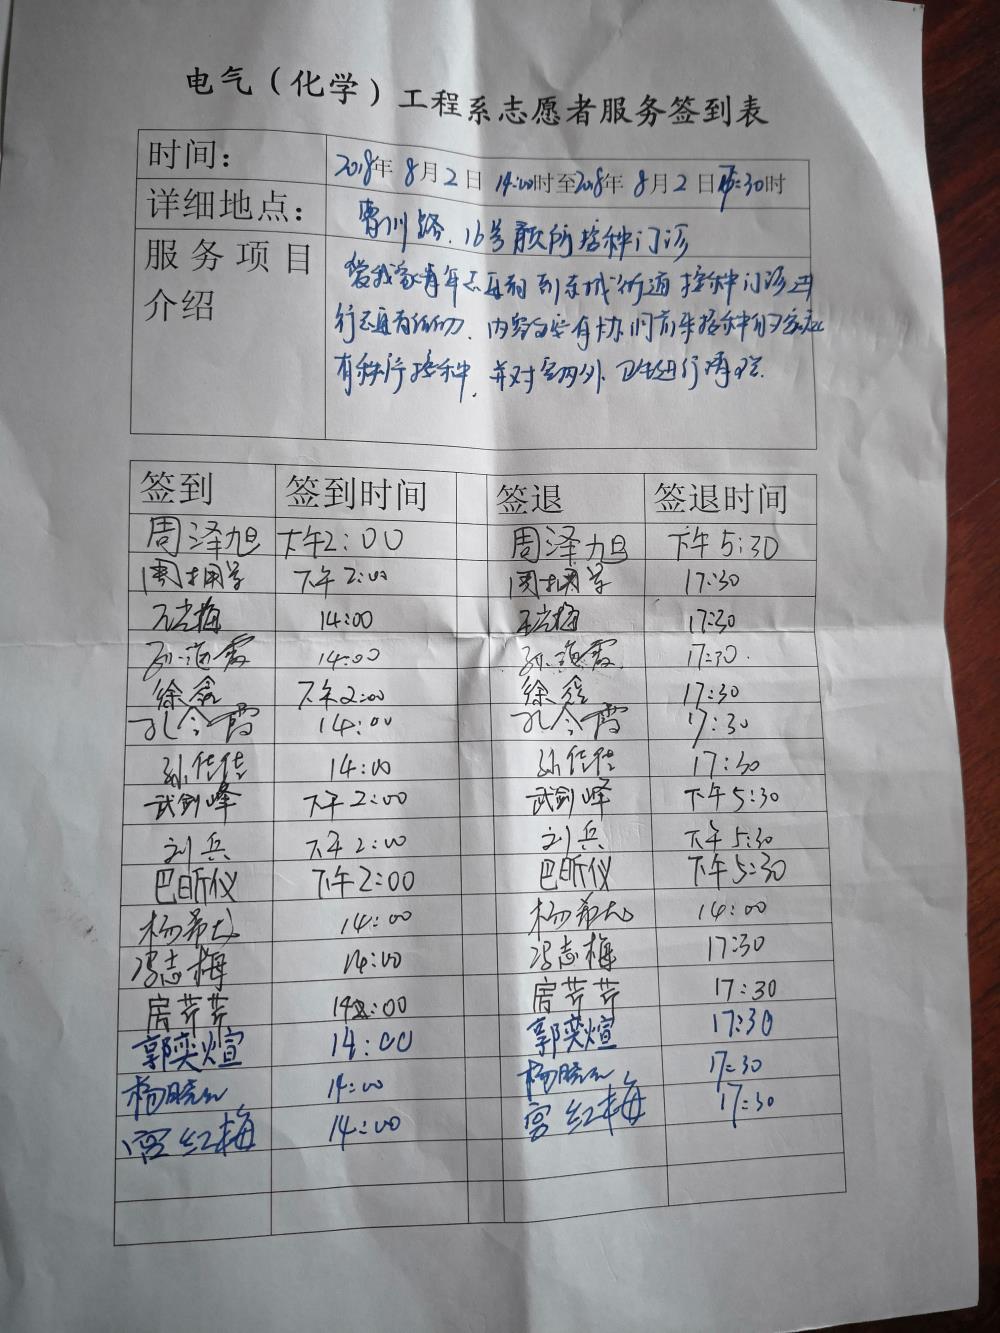 电气（化学）工程系志愿者服务签到表
时间： 2018年 8月2日 14:00时至2018年 8月2日17:30时
详细地点： 曹州路16号 接种门诊
服务项目介绍
行 内容 有 协 前来接种的
有秩序接种，并对室内外卫生进行清理.
签到 签到时间 签退 签退时间
周泽旭 下午2:00 周泽旭 下午5:30
下午2:00 17:30
14:00 17:30
孙海霞 14:00 孙海霞 17:30.
徐鑫 下午2:00 徐鑫 17:30
孔令霞 14:00 孔令霞 17:30
孙佳佳 14:00 孙佳佳 17:30
武剑峰 下午2:00 武剑峰 下午5:30
刘兵 下午2:00 刘兵 下午5:30
巴昕仪 下午2:00 巴昕仪 下午5:30
杨希龙 14:00 杨希龙 14:00
冯志梅 14:00 冯志梅 17:30
房芹芹 14:00 房芹芹 17:30
郭奕煊 14:00 郭奕煊 17:30
杨晓红 14:00 杨晓红 17:30
宫红梅 14:00 宫红梅 17:30